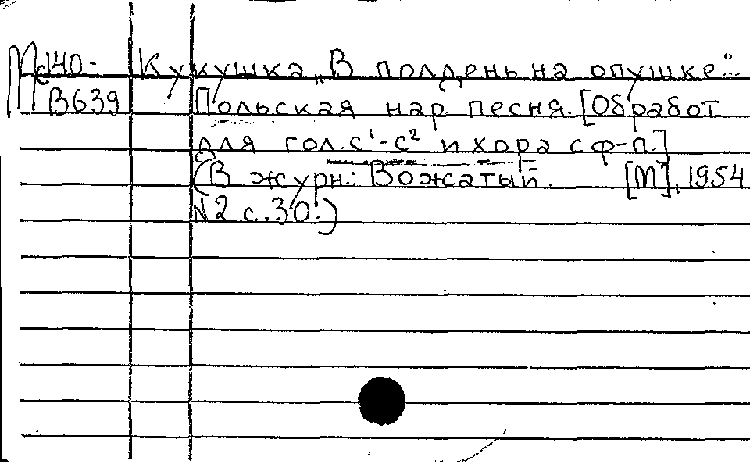 Мс140- Кукушка „В полдень на опушке".
В639 Польская нар песня. [Обработ
для гол. с¹-с² и хора с ф-п.]
(В журн.: Вожатый. [М], 1954
N2 с.30.)